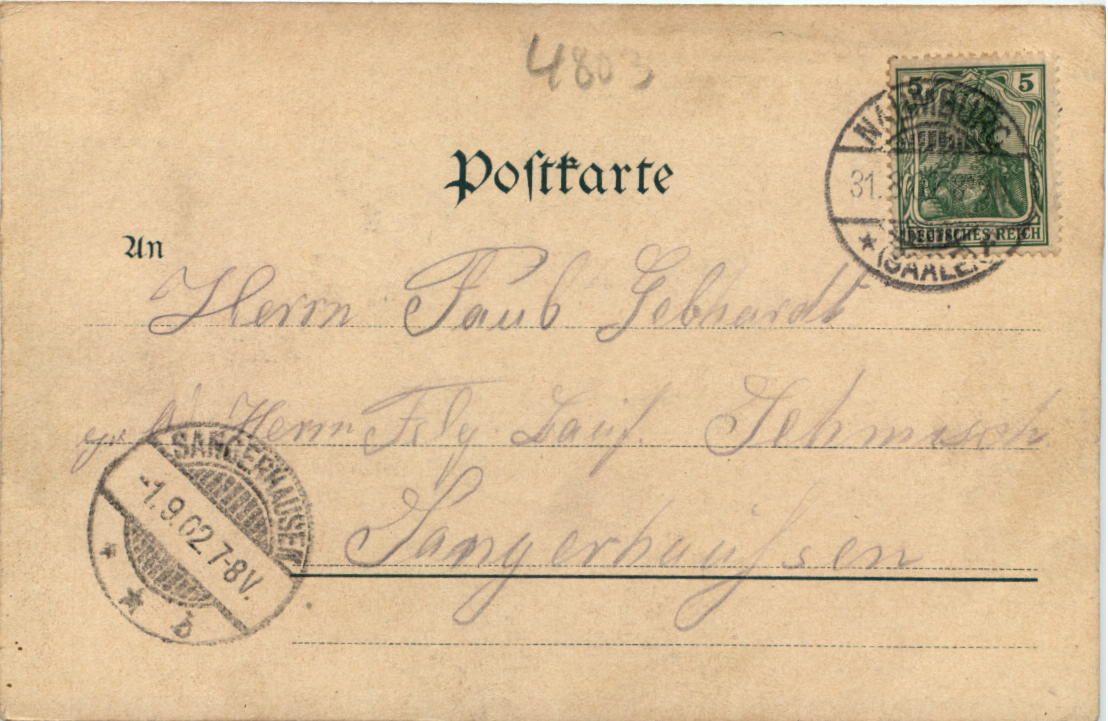 4803
5
5
DEUTSCHES REICH
NAUMBURG
31.
(SAALE)
Postkarte
An
Herrn Paul Gebhardt
Herrn
Sangerhaußen
SANGERHAUSEN
-1.9.02.7-8V.
b